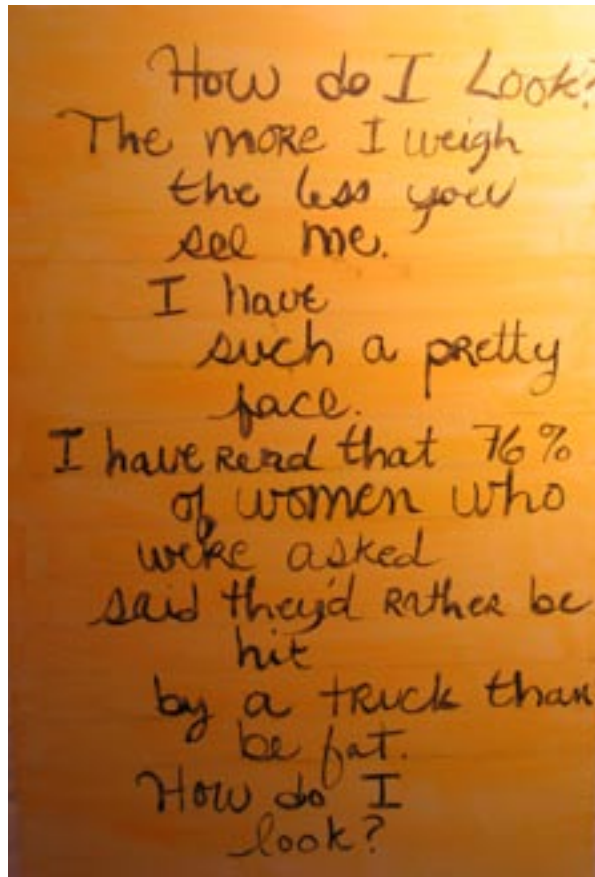 How do I Look?
The more I weigh
the less you
see me.
I have
such a pretty
face.
I have read that 76%
of women who
were asked
said they'd rather be
hit
by a truck than
be fat.
How do I
look?